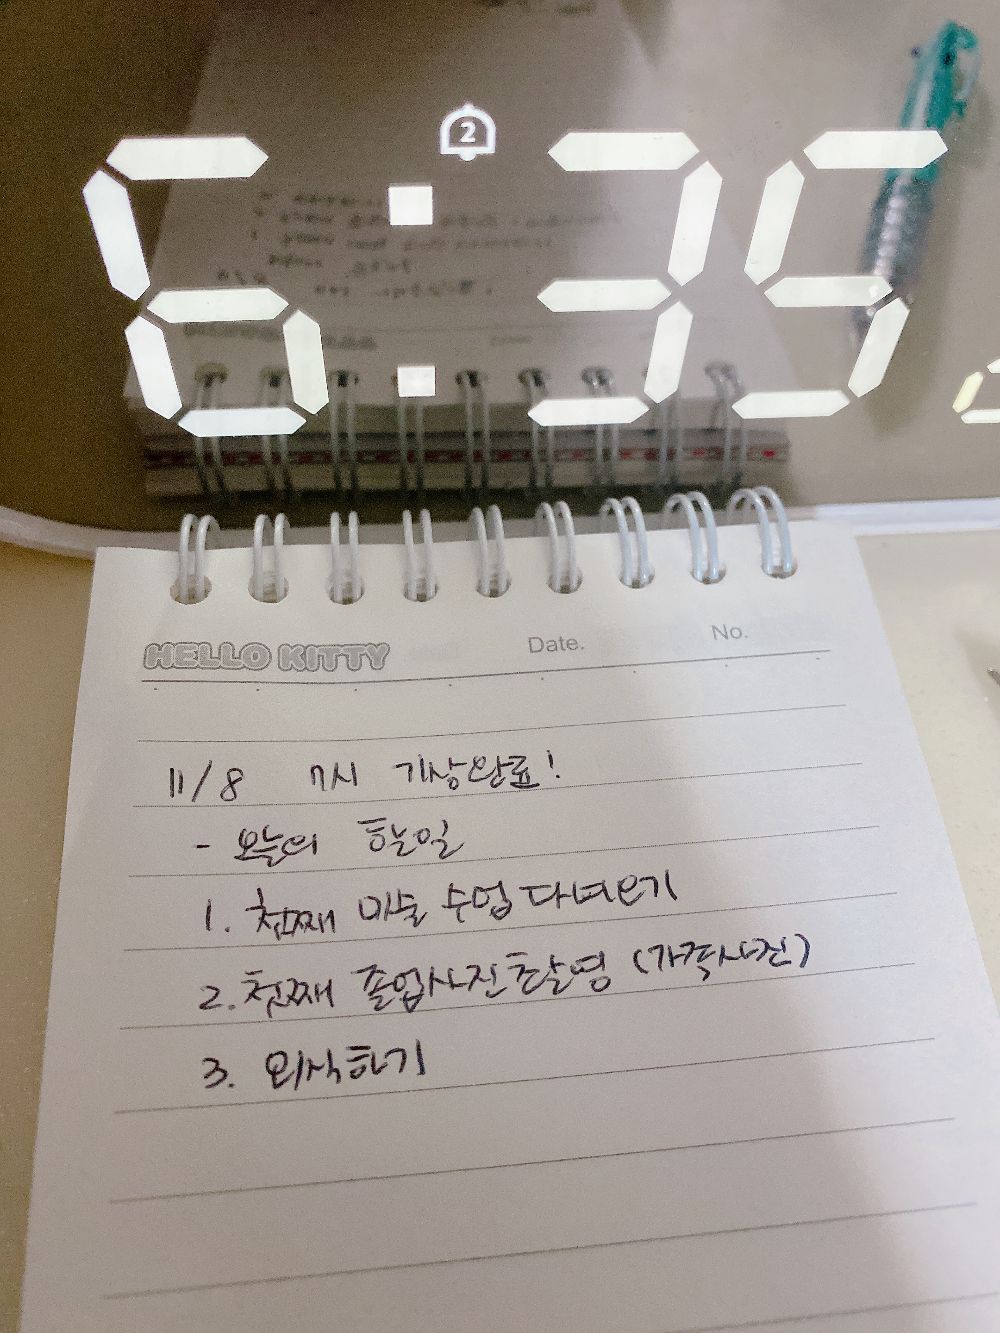 2
6:35
HELLO KITTY Date. No.
11/8 7시 기상완료!
- 오늘의 할일
1. 첫째 미술 수업 다녀오기
2. 첫째 졸업사진촬영 (가족사진)
3. 외식하기